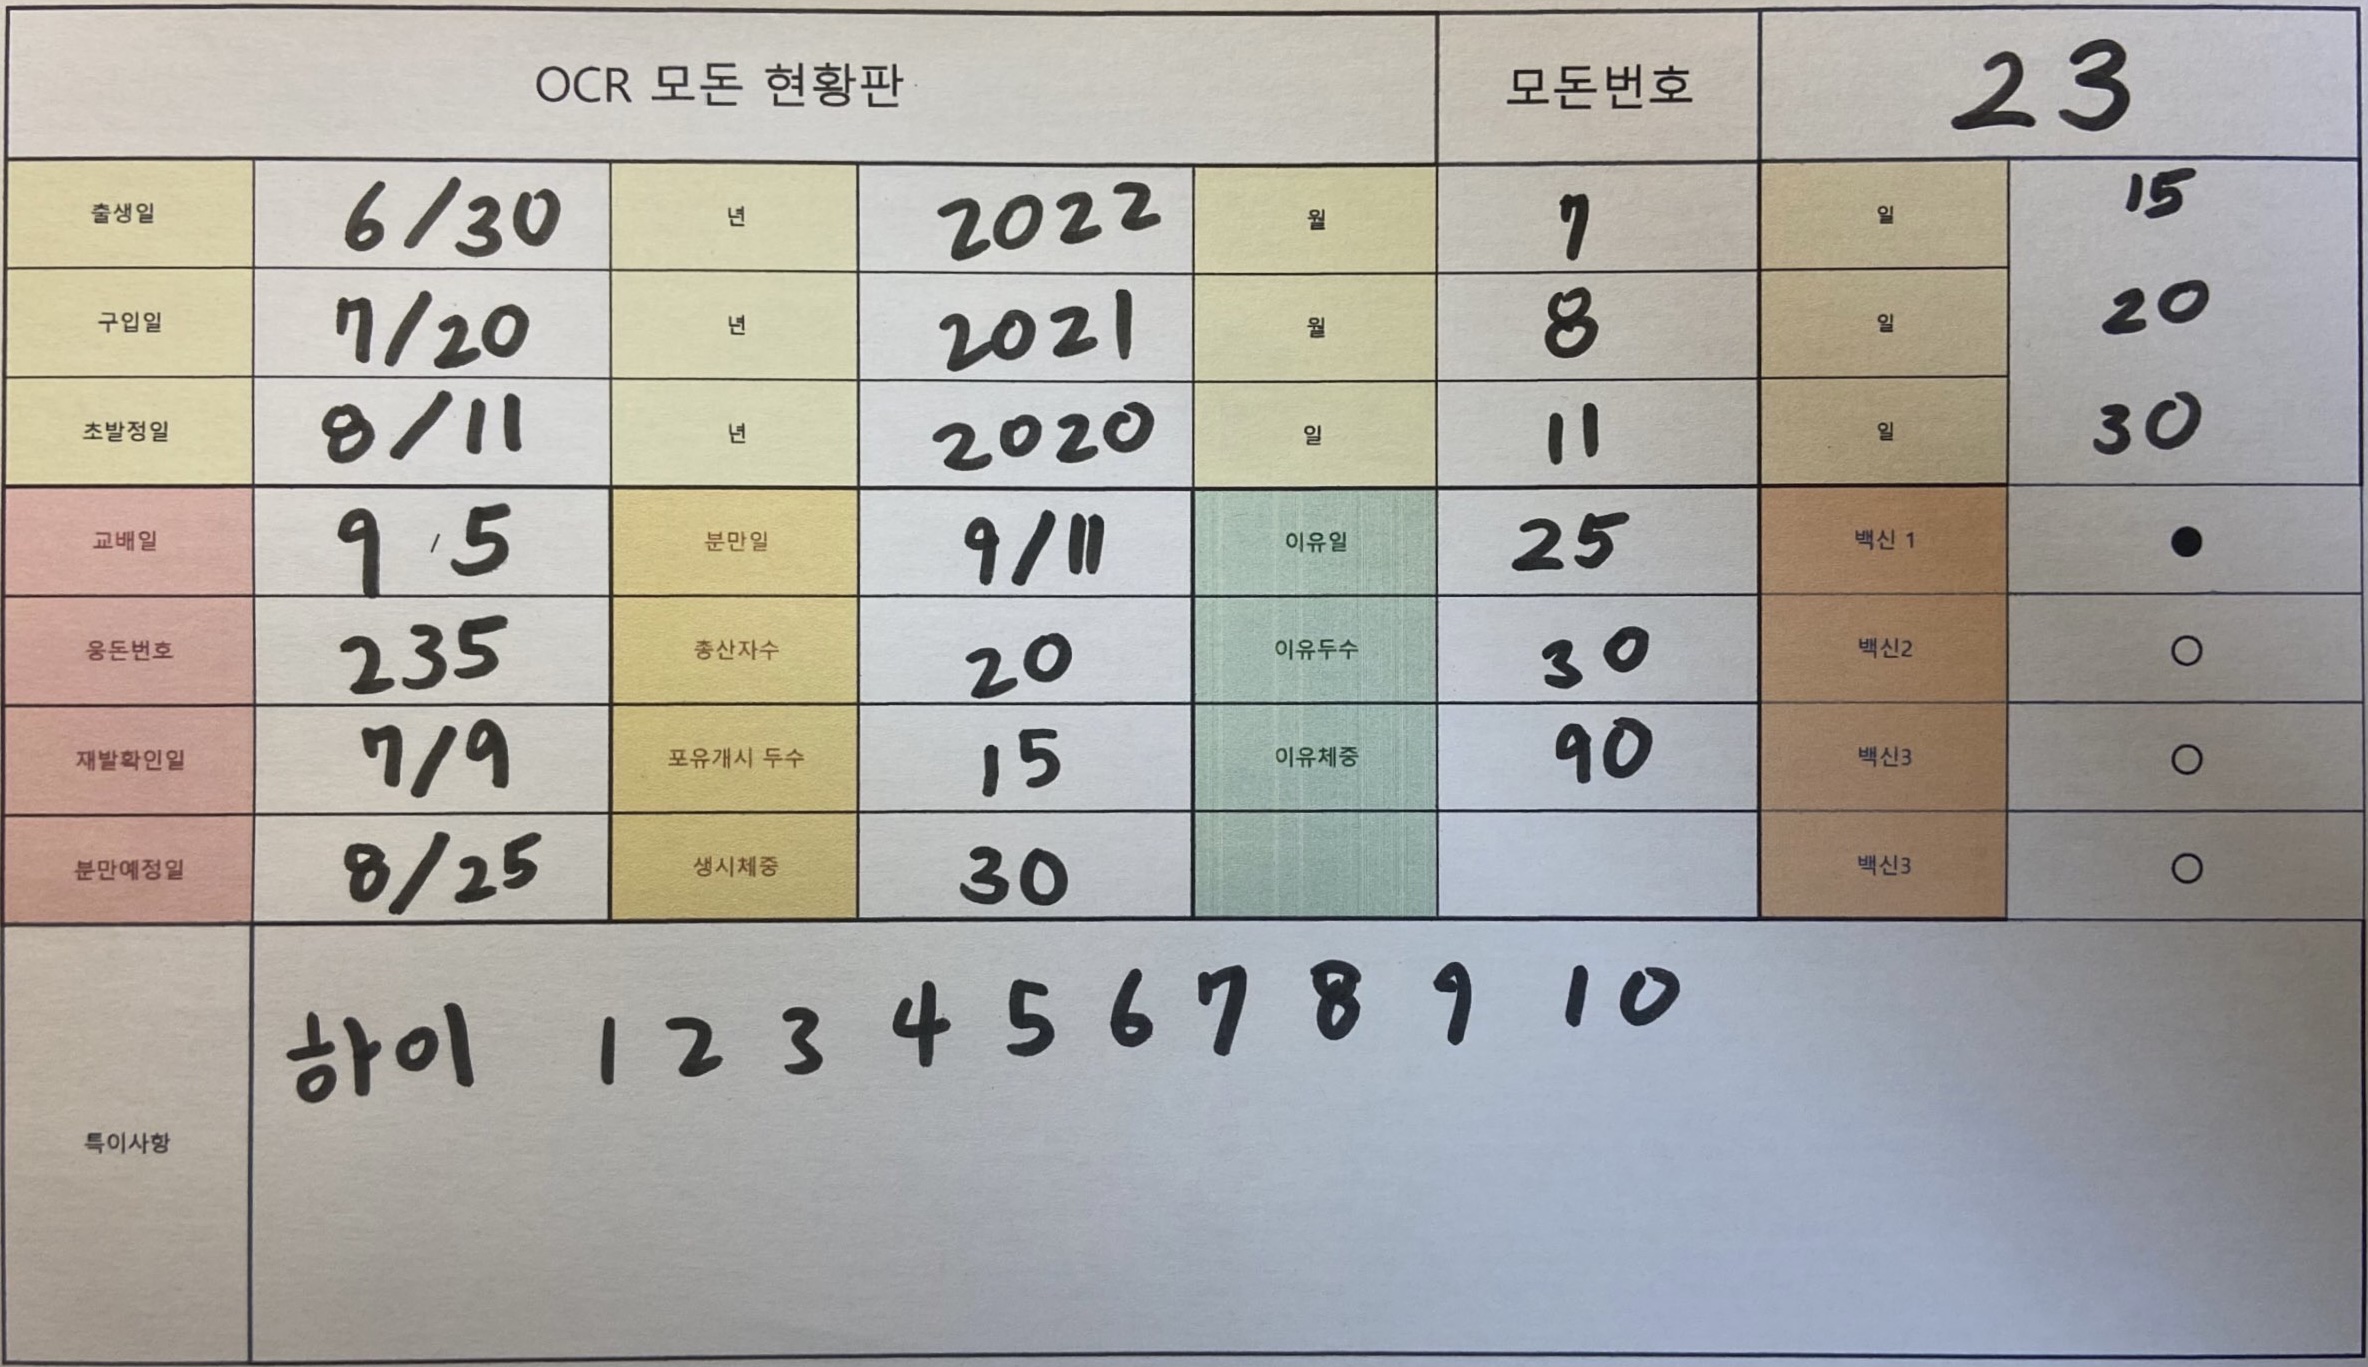 OCR 모돈 현황판 모돈번호 23
출생일 6/30 년 2022 월 7 일 15
구입일 7/20 년 2021 월 8 일 20
초발정일 8/11 년 2020 일 11 일 30
교배일 9 / 5 분만일 9/11 이유일 25 백신 1
웅돈번호 235 총산자수 20 이유두수 30 백신2
재발확인일 7/9 포유개시 두수 15 이유체중 90 백신3
분만예정일 8/25 생시체중 30 백신3
특이사항 하이 1 2 3 4 5 6 7 8 9 10